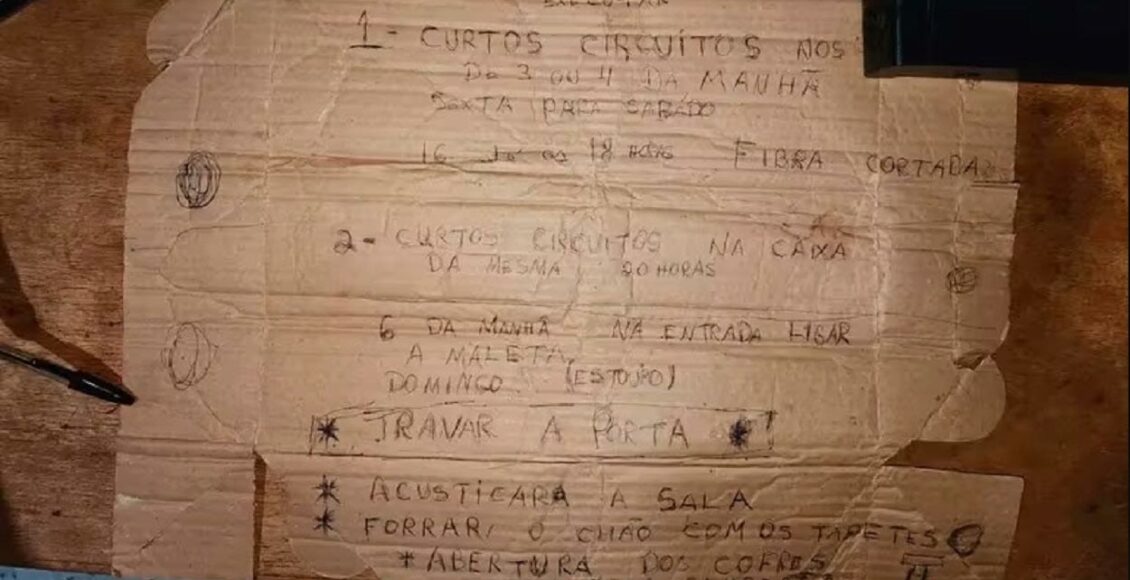 EXECUTAR
1 - CURTOS CIRCUÍTOS NOS
De 3 ou 4 DA MANHÃ
SEXTA PARA SABÁDO
16 às 18 horas FIBRA CORTADA
2 - CURTOS CIRCUITOS NA CAIXA
DA MESMA 20 HORAS
6 DA MANHÃ NA ENTRADA LIGAR
A MALETA,
DOMINGO (ESTOURO)
* TRAVAR A PORTA *
* ACUSTICARA A SALA
* FORRAR O CHÃO COM OS TAPETES
* ABERTURA DOS COFRES